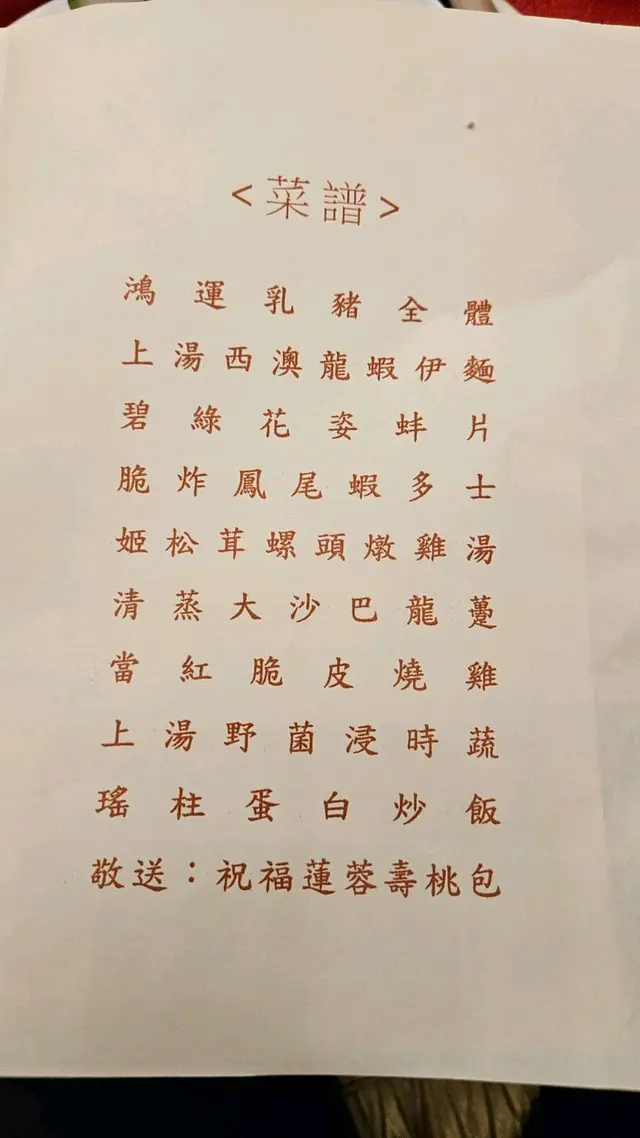 <菜譜>
鴻運乳豬全體
上湯西澳龍蝦伊麵
碧綠花姿蚌片
脆炸鳳尾蝦多士
姬松茸螺頭燉雞湯
清蒸大沙巴龍躉
當紅脆皮燒雞
上湯野菌浸時蔬
瑤柱蛋白炒飯
敬送：祝福蓮蓉壽桃包